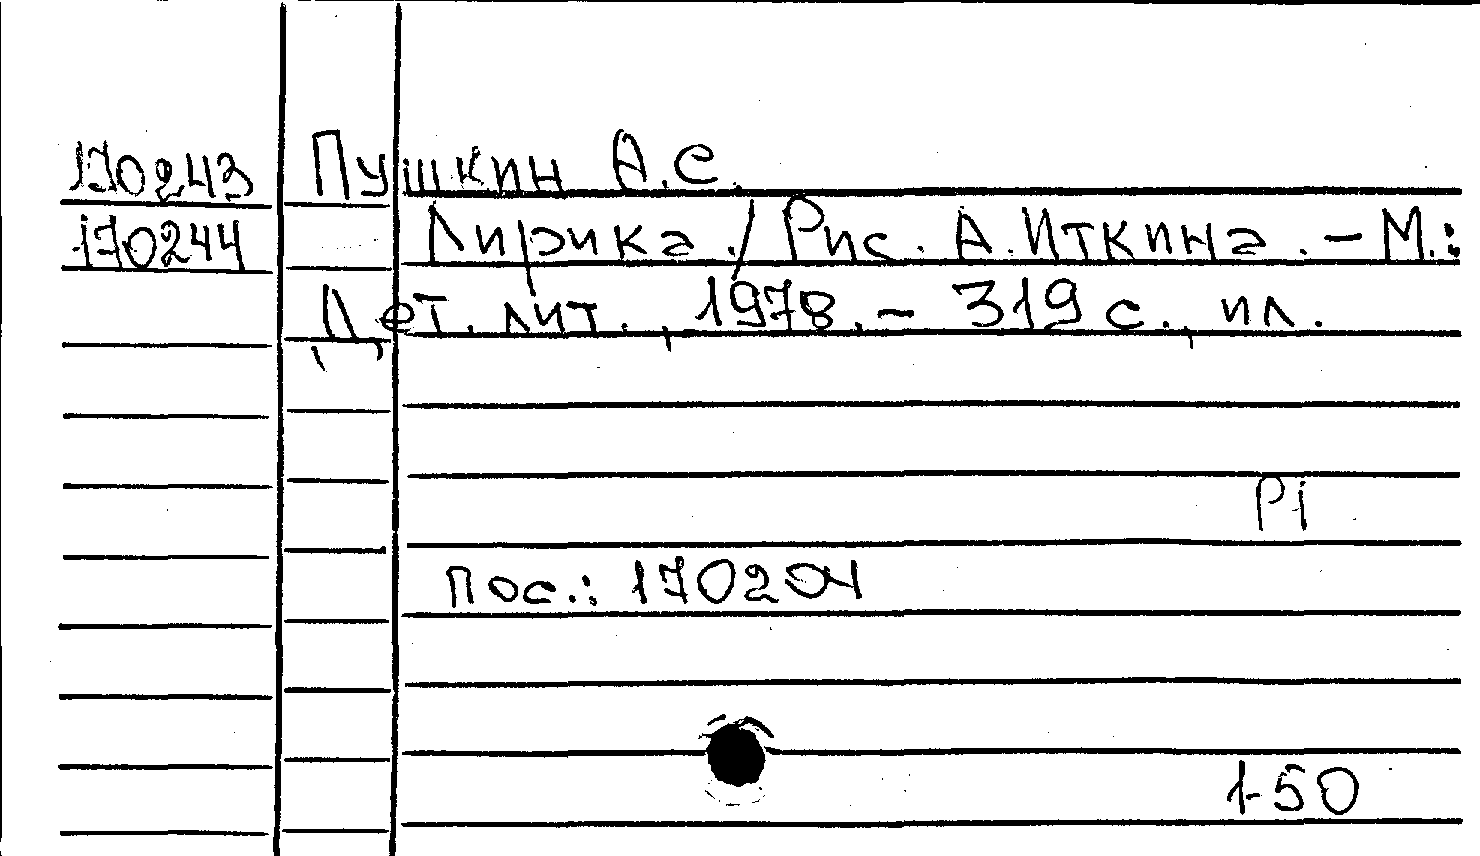 170243 Пушкин А.С.
170244 Лирика./ Рис. А.Иткина. – М.:
Дет. лит., 1978. – 319 с., ил.
Рі
пос.: 170204
1-50